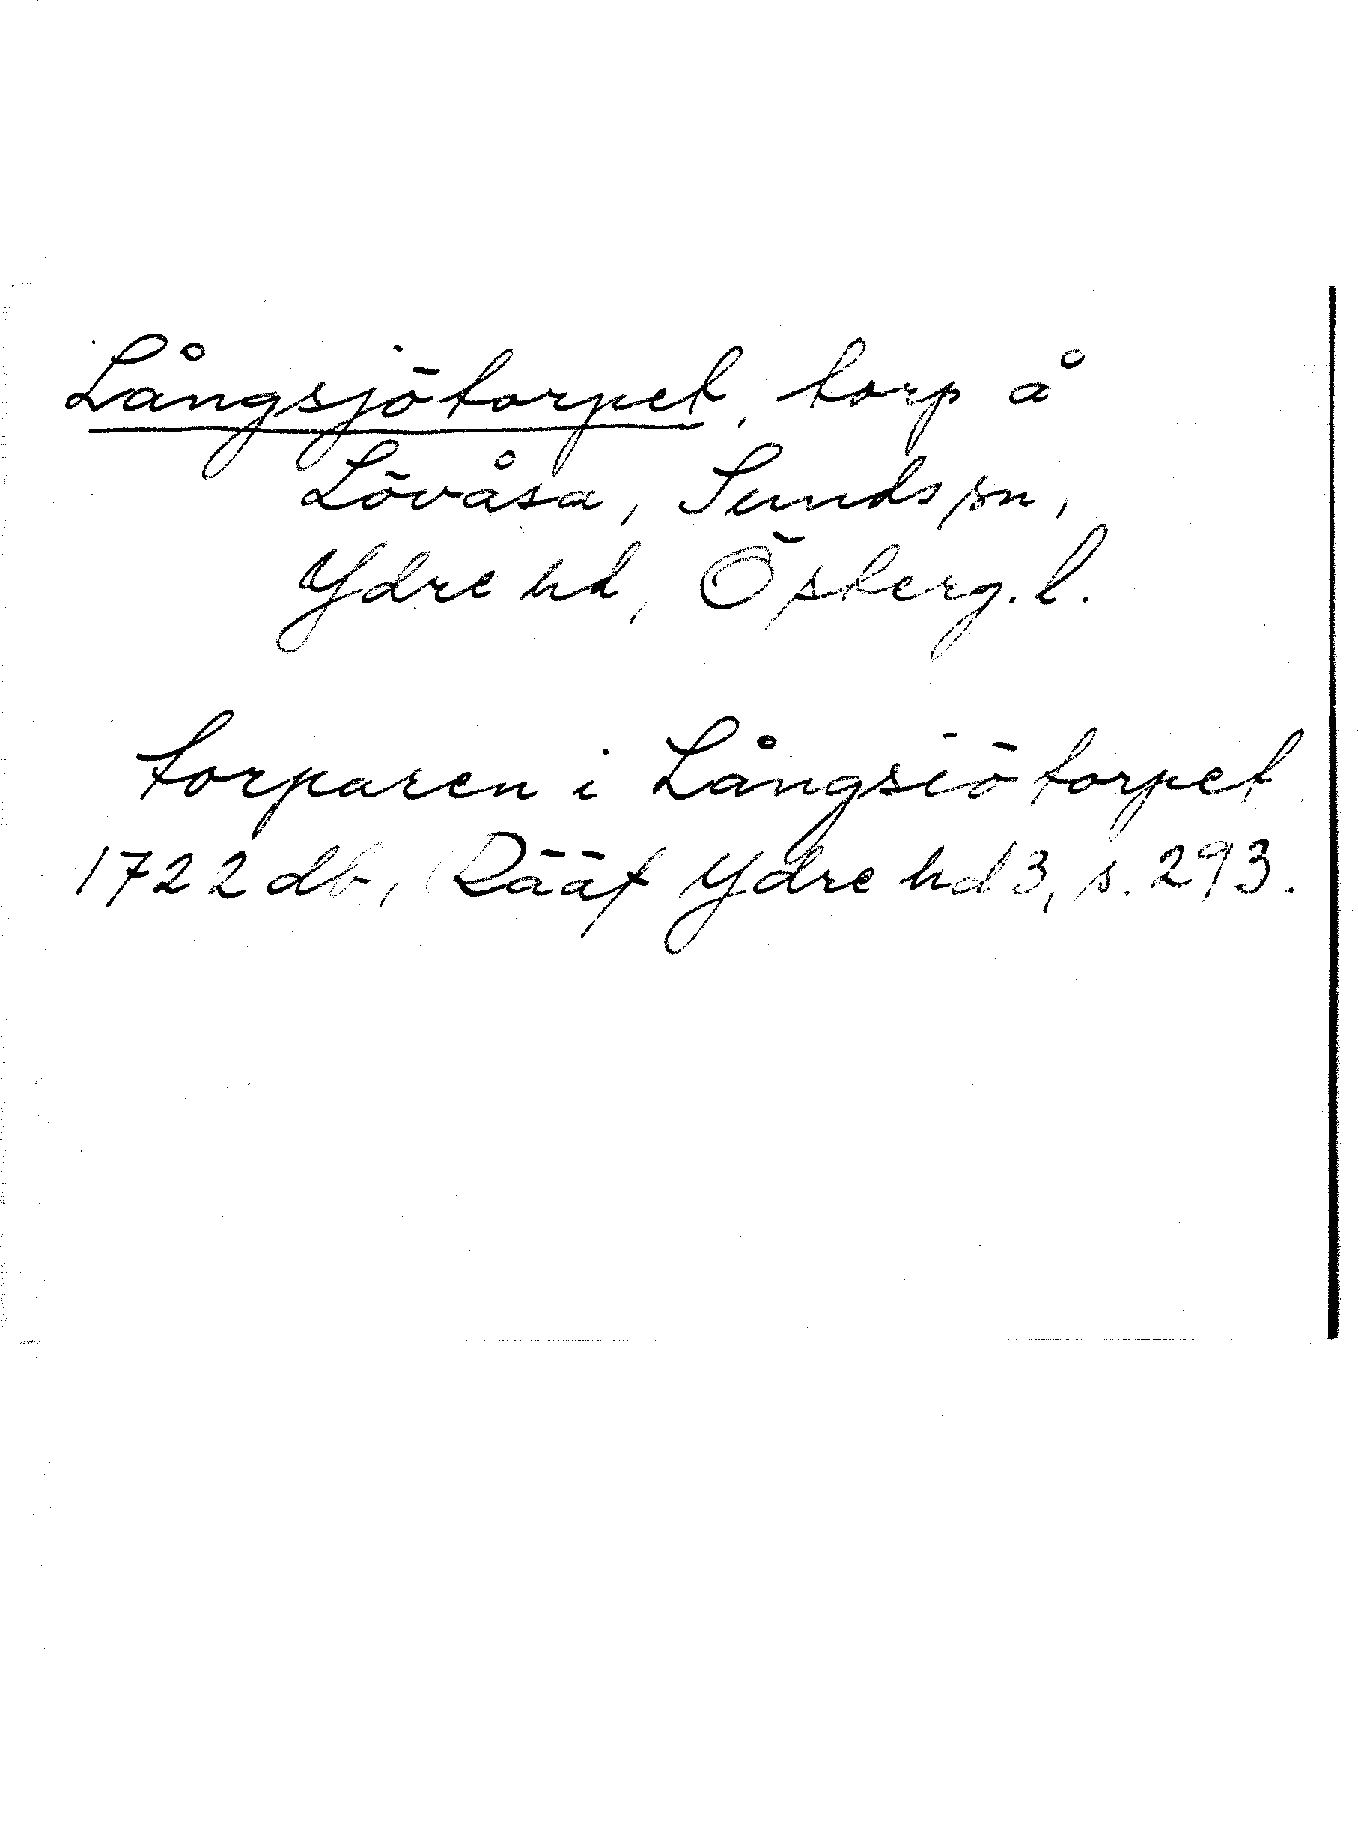 Långsjötorpet, torp å
Lövåsa, Sunds sn,
Ydre hd, Österg. l.
torparen i Långsiötorpet
1722 db, Rääf Ydre hd 3, s. 293.